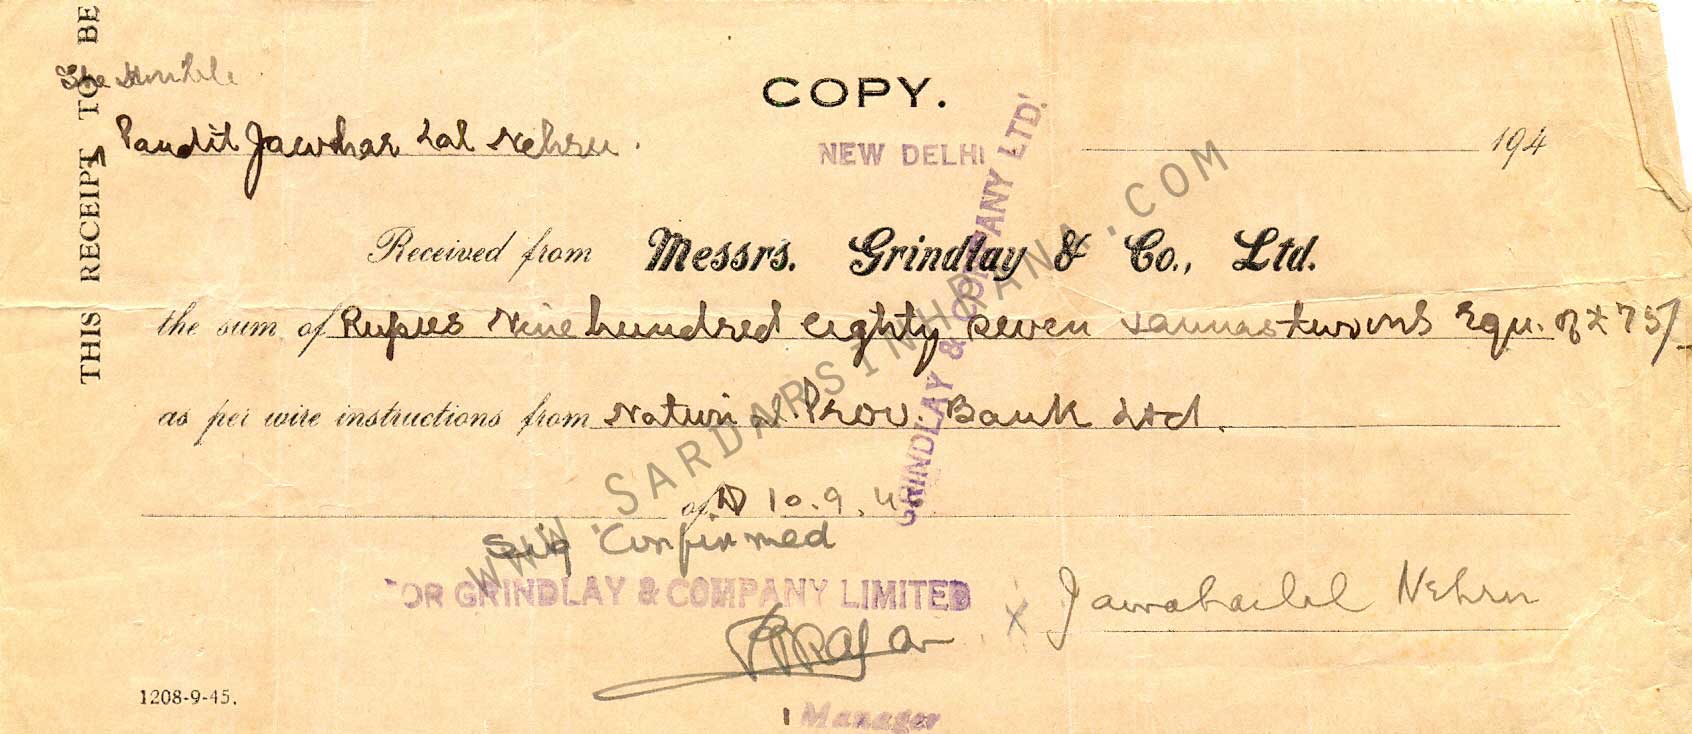 THIS RECEIPT TO BE
The Honble
Pandit Jawhar Lal Nehru.
COPY.
NEW DELHI
194
Received from Messrs. Grindlay & Co., Ltd.
the sum of Rupees Nine hundred eighty seven & annas two only Equ. of £ 75/-
as per wire instructions from Nation al Prov. Bank Ltd.
of D 10.9.4
Sig Confirmed
GRINDLAY & COMPANY LTD.
FOR GRINDLAY & COMPANY LIMITED
x Jawaharlal Nehru
Manager
1208-9-45.
WWW.SARDARSINHRANA.COM